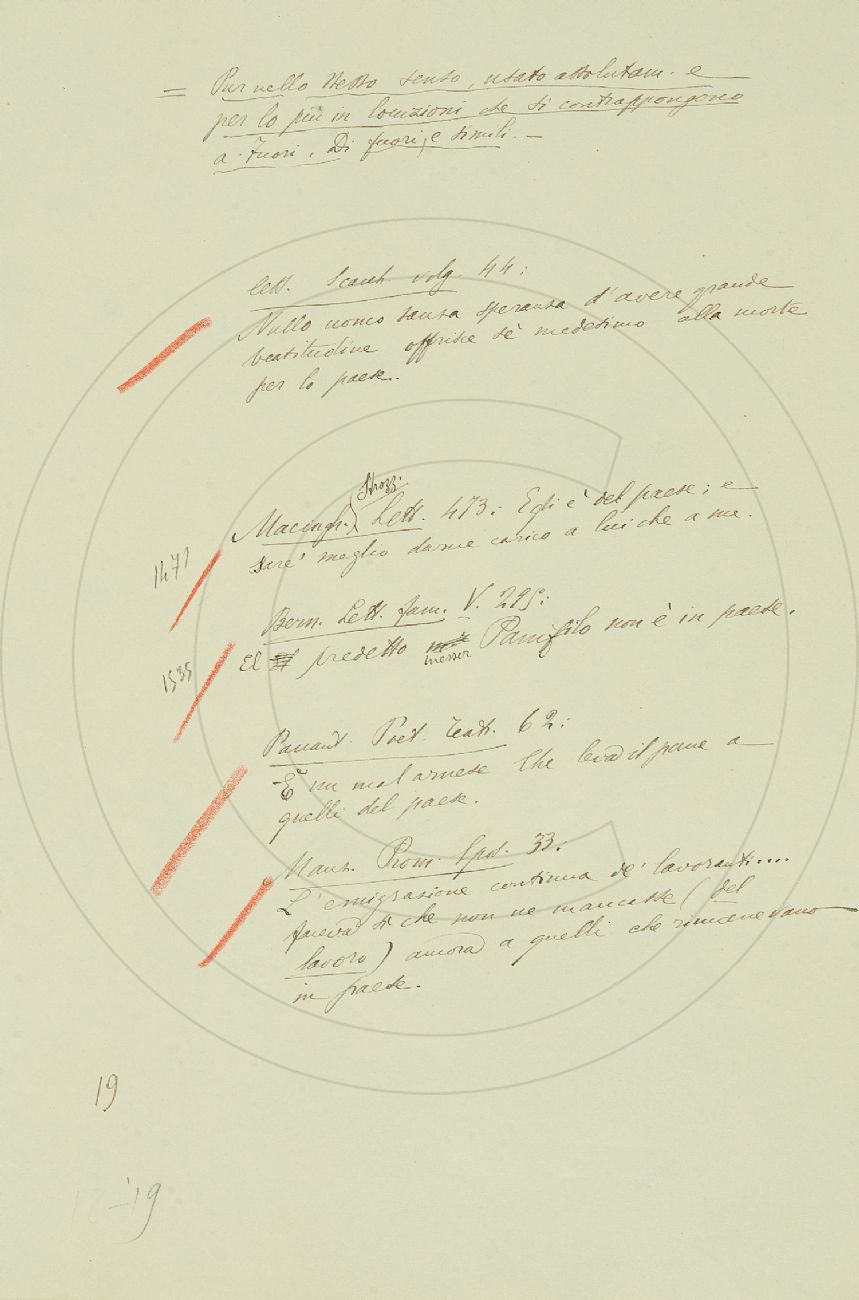 = Pur nello stesso senso, usato assolutam. e
per lo più in locuzioni che si contrappongono
a Fuori, Di fuori, e simili. –
Lett. volg. 44:
Nullo uomo sanza speranza d'avere grande
beatitudine offrisce sè medesimo alla morte
per lo paese.
Strozz.
Macingh. Lett. 473: Egli è del paese; e
1471
sare' meglio darne carico a lui che a me.
Bern. Lett. fam. V. 295:
1535
El predetto messer Panfilo non è in paese.
Panant. Poet. Teatr. 62:
È un mal arnese Che leva il pane a
quelli del paese.
Manz. Prom. Spos. 33:
L'emigrazione continua de' lavoranti....
faceva sì che non ne mancasse (del
lavoro) ancora a quelli che rimanevano
in paese.
19
19